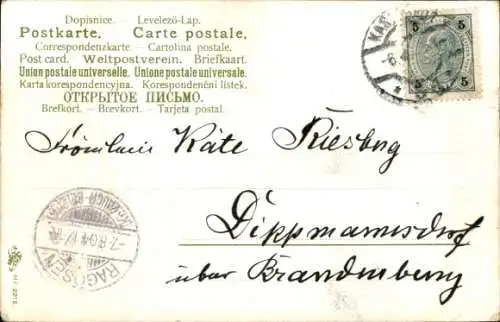 Dopisnice. Levelező-Lap.
Postkarte. Carte postale.
Correspondenzkarte. – Cartolina postale.
Post card. Weltpostverein. Briefkaart.
Union postale universelle. Unione postale universale.
Karta korespondencyjna. Korespondenční lístek.
ОТКРЫТОЕ ПИСЬМО.
Brefkort. – Brevkort. – Tarjeta postal.
5 5
5 5
Fräulein Käte Riesbg
Dippmannsdorf
über Brandenburg
RAGÖSEN